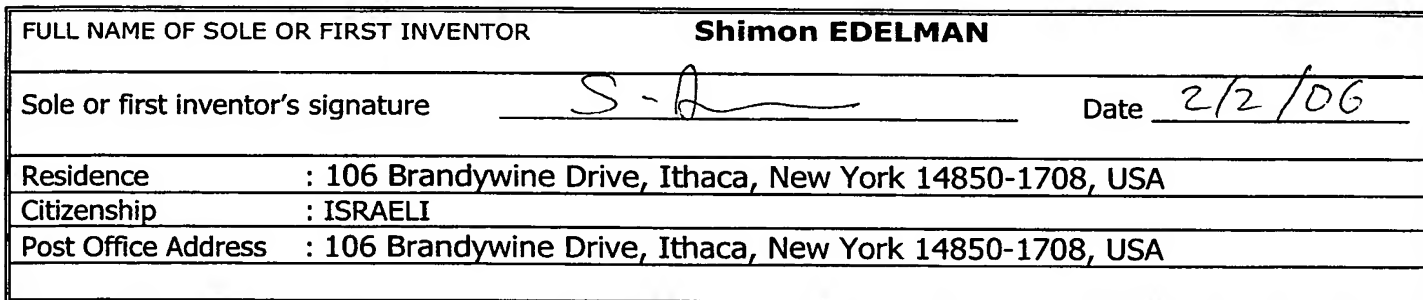 FULL NAME OF SOLE OR FIRST INVENTOR Shimon EDELMAN
Sole or first inventor's signature Date 2/2/06
Residence : 106 Brandywine Drive, Ithaca, New York 14850-1708, USA
Citizenship : ISRAELI
Post Office Address : 106 Brandywine Drive, Ithaca, New York 14850-1708, USA